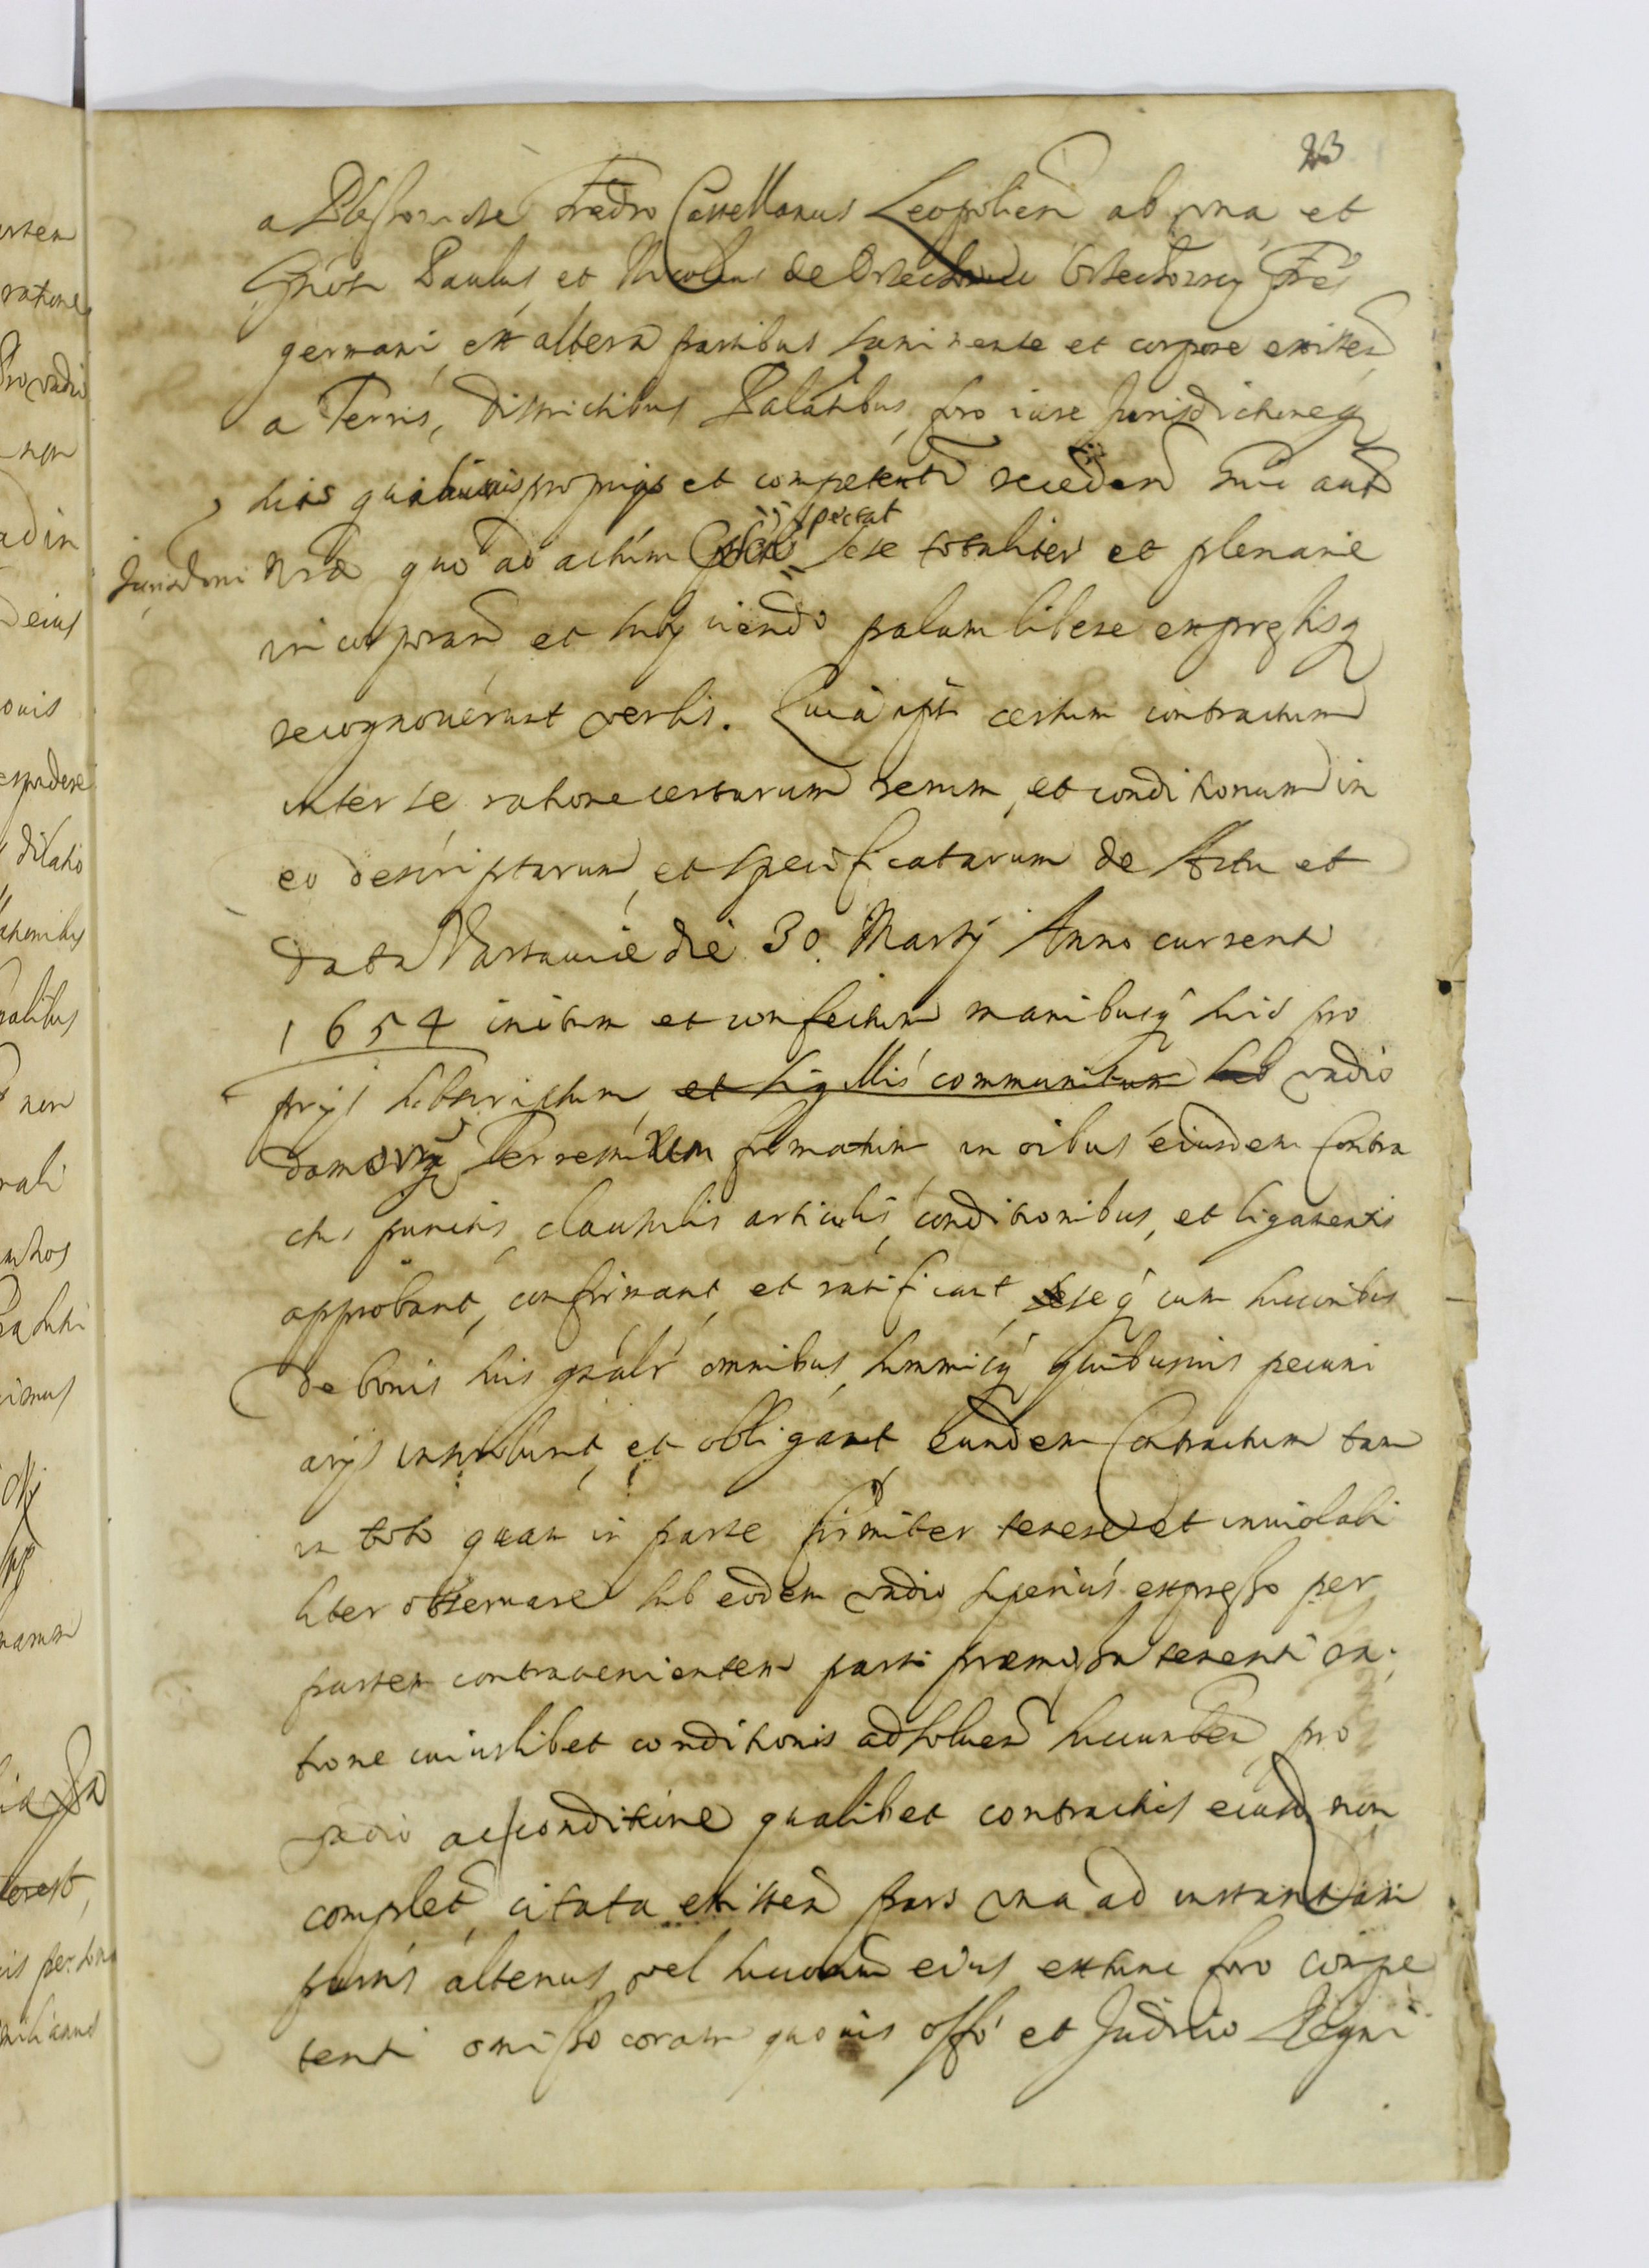 23
a Pleszowice Fredro Castellanus Leopolien ab una et
Gnosi Paulus et Nicolaus de Orzechowce Orzechowscy Fres
germani, ex altera partibus sani mente et corpore existen
a Terris, Districtibus Palatibus, pro iure Jurisdictioneq
suis quibusuis proprijs et competent receden suic aut
Jurisdoni nrae quo ad actum spectat sese totaliter et plenarie
incorporan et subijciendo palam libere expressisq
recognouerunt verbis. Quia ipsi certum contractum
inter se ratione certarum rerum et conditionum in
eo descriptarum et specificatarum de Actu et
data Varsauiae die 30. Martij Anno current
1654 initum et confectum manibusq suis pro
prijs subscriptum et sigillis communitum sub vadio
firmatum in oibus eiusdem Contra
ctus punctis, clausulis articulis, conditionibus, et ligamentis
approbant, confirmant, et ratificant, seseq cum succoribus
de bonis suis gnalr omnibus, summisq quibusuis pecuni
arijs inscribunt, et obligant, eundem Contractum tam
in toto quam in parte firmiter tenere et inuiolabi
liter obseruare sub eodem vadio superius expresso per
partem contrauenientem parti praemissa tenenti ra
tione cuiuslibet conditionis adsoluen succumben, pro
vadio ac conditione qualibet contractus eiusd non
complet, citata existen pars una ad instantiam
partis alterius vel succorum eius extunc foro compe
tenti omisso coram quouis offo et Judicio Regni